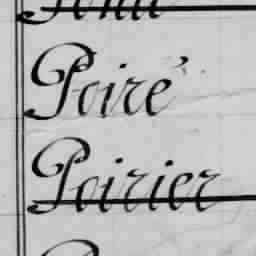 Poiré
Poirier